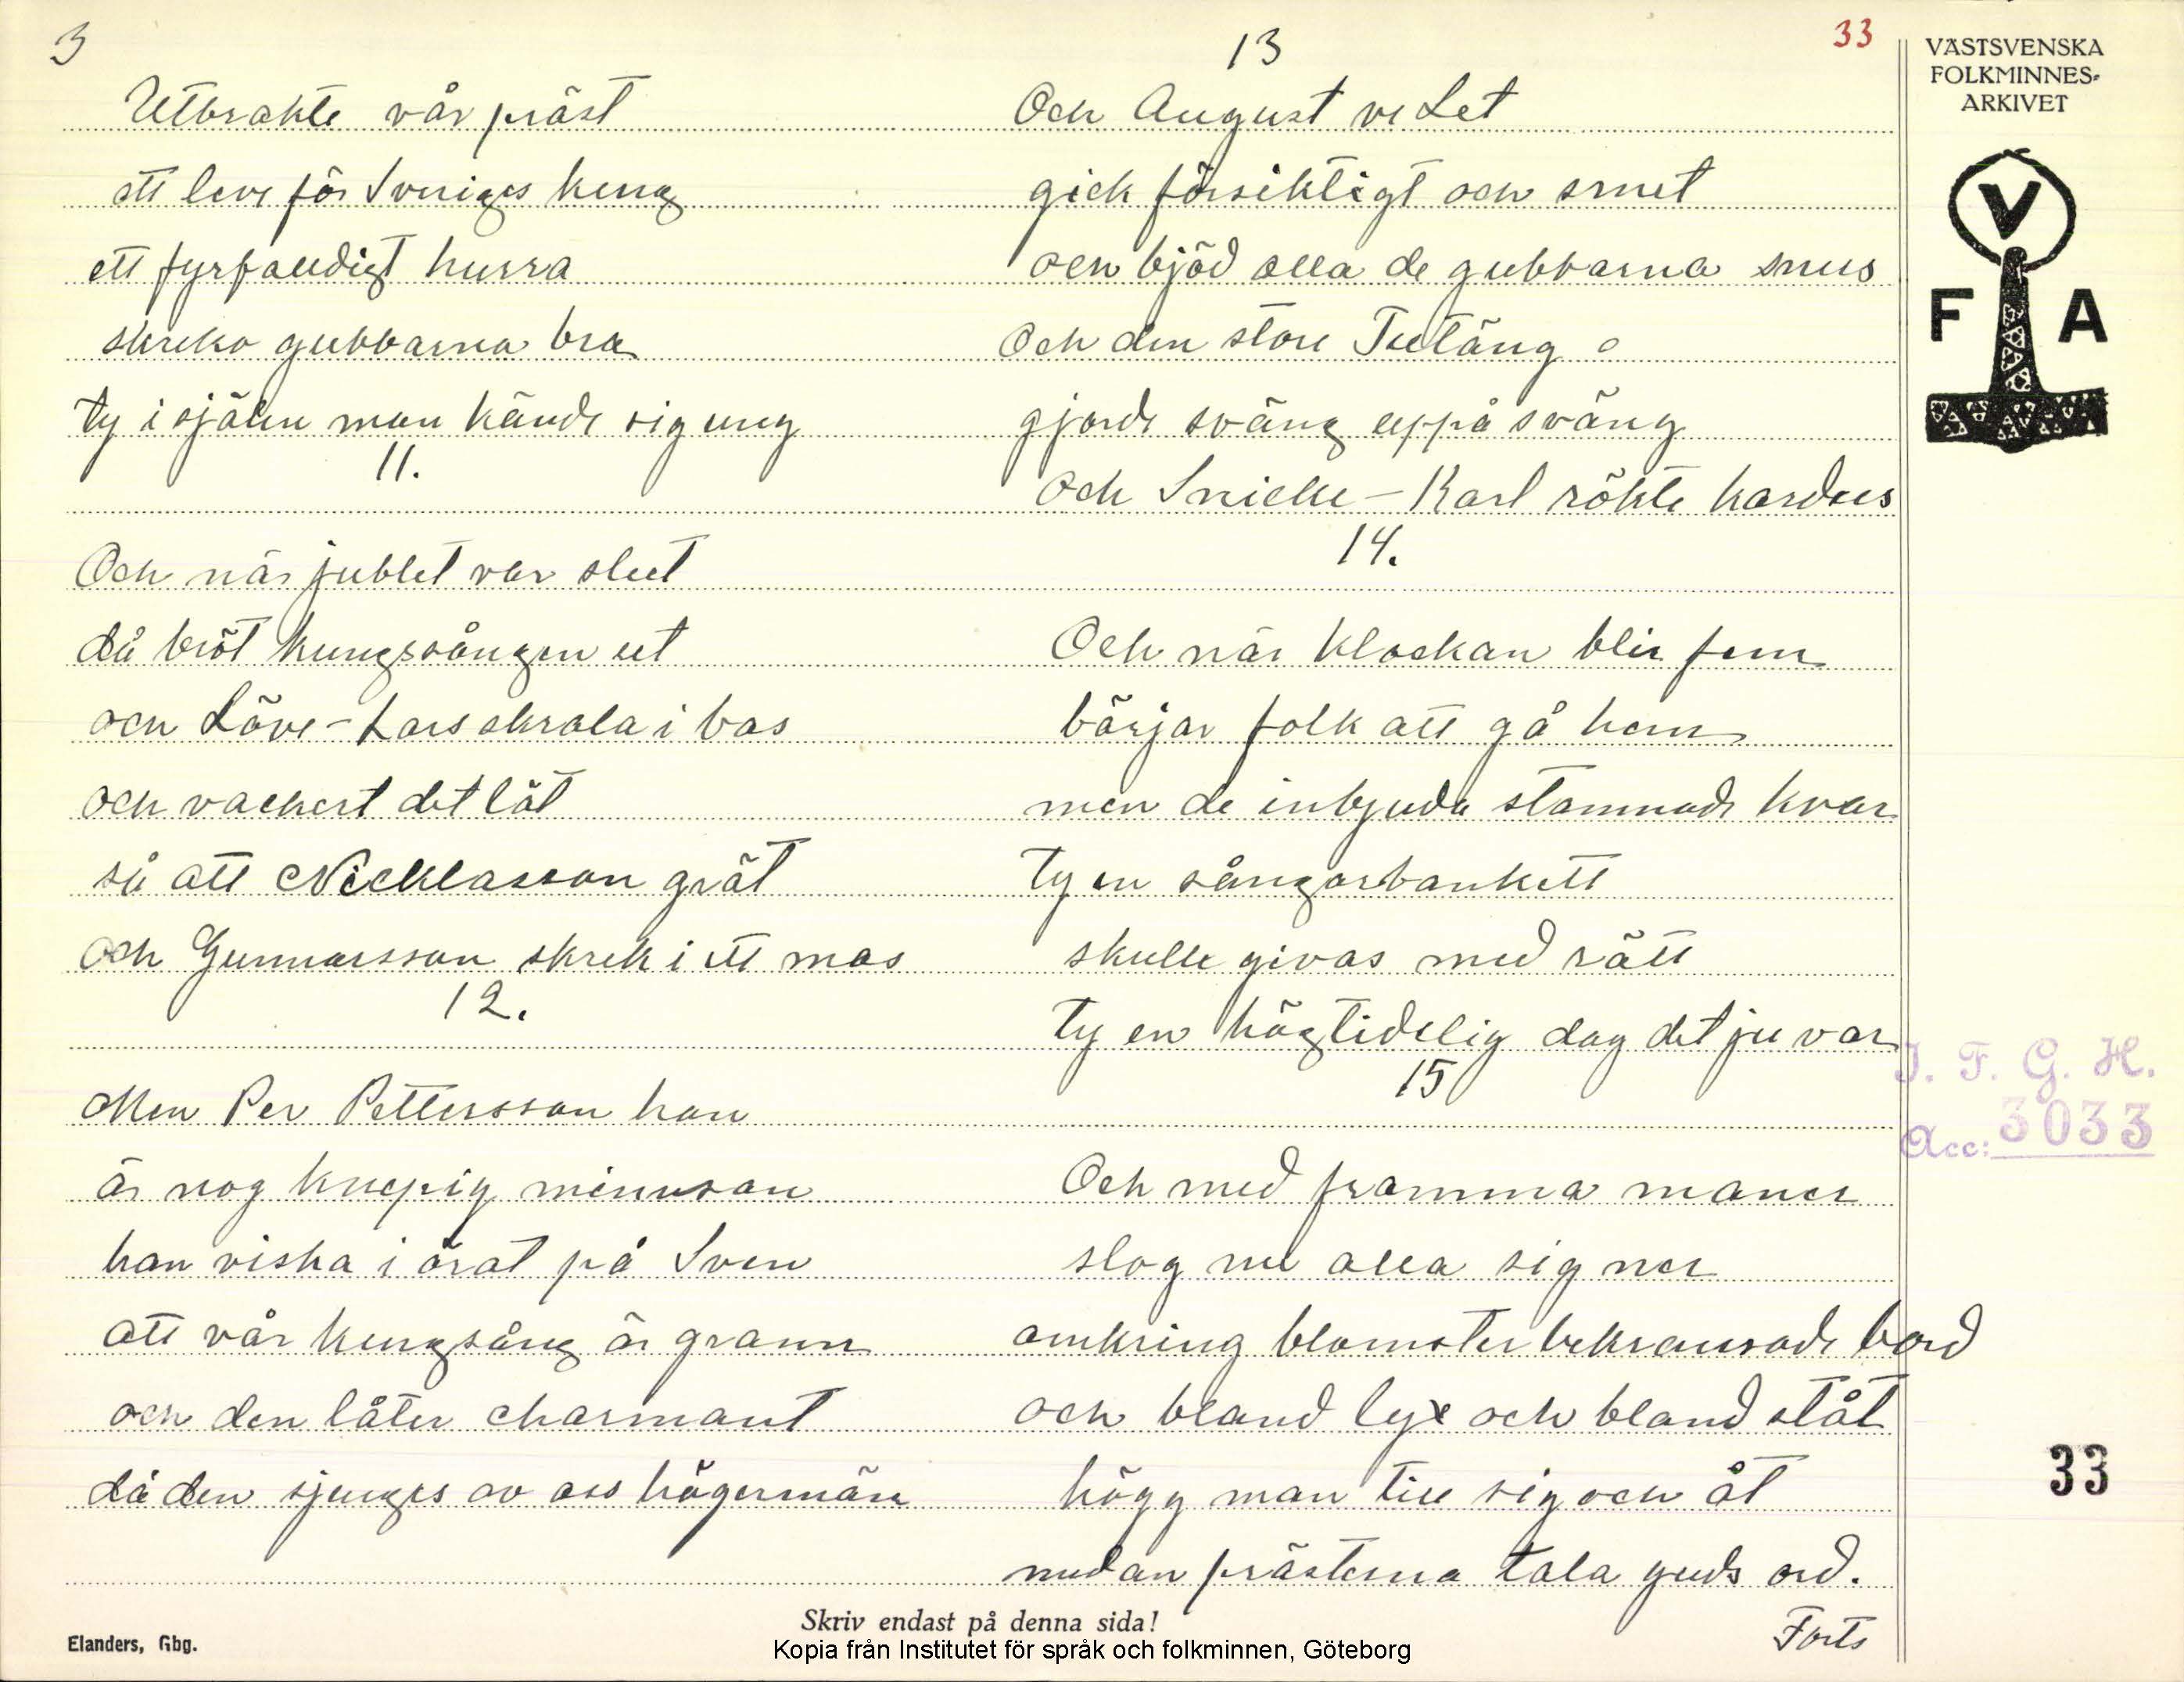 3
Utbrakte vår präst
ett leve för Sveriges kung
ett fyrfaldigt hurra
skreko gubbarna bra
ty i själen man kände sig ung
11.
Och när jublet var slut
då bröt kungssången ut
och Löve-Lars skrala i bas
och vackert det lät
så att Nicklasson grät
och Gunnarsson skrek i ett mas
12.
Men Per Pettersson han
är nog knepig minnsan
han viska i örat på Sven
att vår kungsång är grann
och den låter charmant
då den sjunges av oss högermän
13
Och August ve Let
gick försiktigt och smet
och bjöd alla de gubbarna snus
Och den store Tutäng
gjorde sväng uppå sväng
och Snicke-Karl rökte kardus
14.
Och när klockan blir fem
börjar folk att gå hem
men de inbjuda stannade kvar
ty en sångarbankett
skulle givas med rätt
ty en högtidelig dag det ju var
15
Och med framma maner
slog nu alla sig ner
omkring blomster bekransade bord
och bland lyx och bland ståt
högg man till sig och åt
medan prästerna tala guds ord.
Forts
33
VÄSTSVENSKA
FOLKMINNES-
ARKIVET
V
F A
I. F. G. H.
Acc: 3033
33
Skriv endast på denna sida!
Elanders, Gbg.
Kopia från Institutet för språk och folkminnen, Göteborg